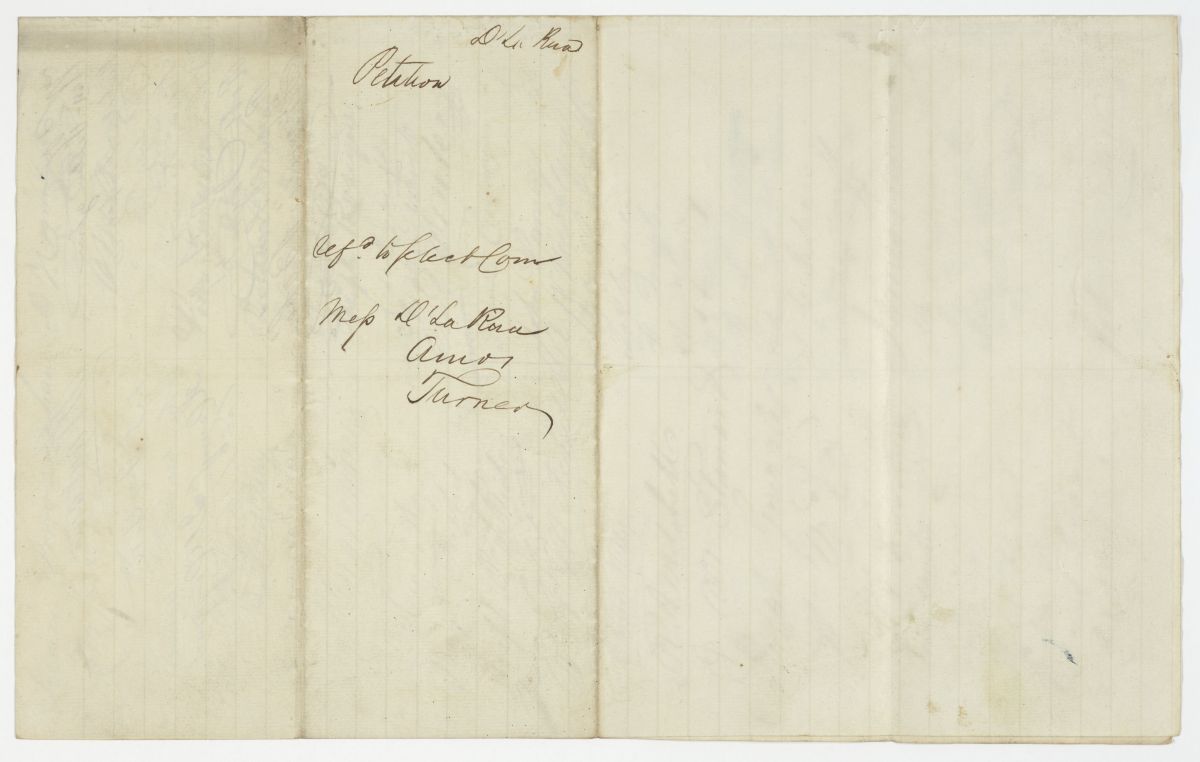 D' La Rua
Petition
refd. to select Com
Mess D' La Rua
Amos
Turner